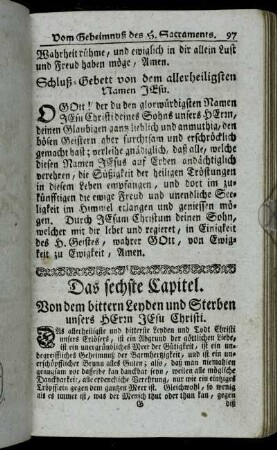 Vom Geheimnuß des H. Sacraments. 97
Wahrheit rühme, und ewiglich in dir allein Lust
und Freud haben möge, Amen.
Schluß-Gebett von dem allerheiligsten
Namen JEsu.
O GOtt! der du den glorwürdigsten Namen
JEsu Christi deines Sohns unsers HErrn,
deinen Glaubigen ganz lieblich und anmuthig, den
bösen Geistern aber furchtsam und erschröcklich
gemacht hast; verleihe gnädiglich, daß alle, welche
diesen Namen JEsus auf Erden andächtiglich
verehren, die Süßigkeit der heiligen Tröstungen
in diesem Leben empfangen, und dort im zu-
künfftigen die ewige Freud und unendliche See-
ligkeit im Himmel erlangen und geniessen mö-
gen. Durch JEsum Christum deinen Sohn,
welcher mit dir lebet und regieret, in Einigkeit
des H. Geistes, wahrer GOtt, von Ewig-
keit zu Ewigkeit, Amen.
Das sechste Capitel.
Von dem bittern Leyden und Sterben
unsers HErrn JEsu Christi.
DAs allerheiligste und bitterste Leyden und Todt Christi
unsers Erlösers, ist ein Abgrund der göttlichen Liebe,
ist ein unergründliches Meer der Gütigkeit, ist ein un-
begreiffliches Geheimnuß der Barmhertzigkeit, und ist ein un-
erschöpfflicher Brunn alles Guten; also, daß man niemahlen
genugsam vor dasselbe kan danckbar seyn, Weilen aber alle mögliche
Danckbarkeit, alle erdenckliche Verehrung, nur wie ein eintziges
Tröpfflein gegen dem gantzen Meer ist. Gleichwohl, so wenig
als es immer ist, was der Mensch thut oder thun kan, gegen
G diß